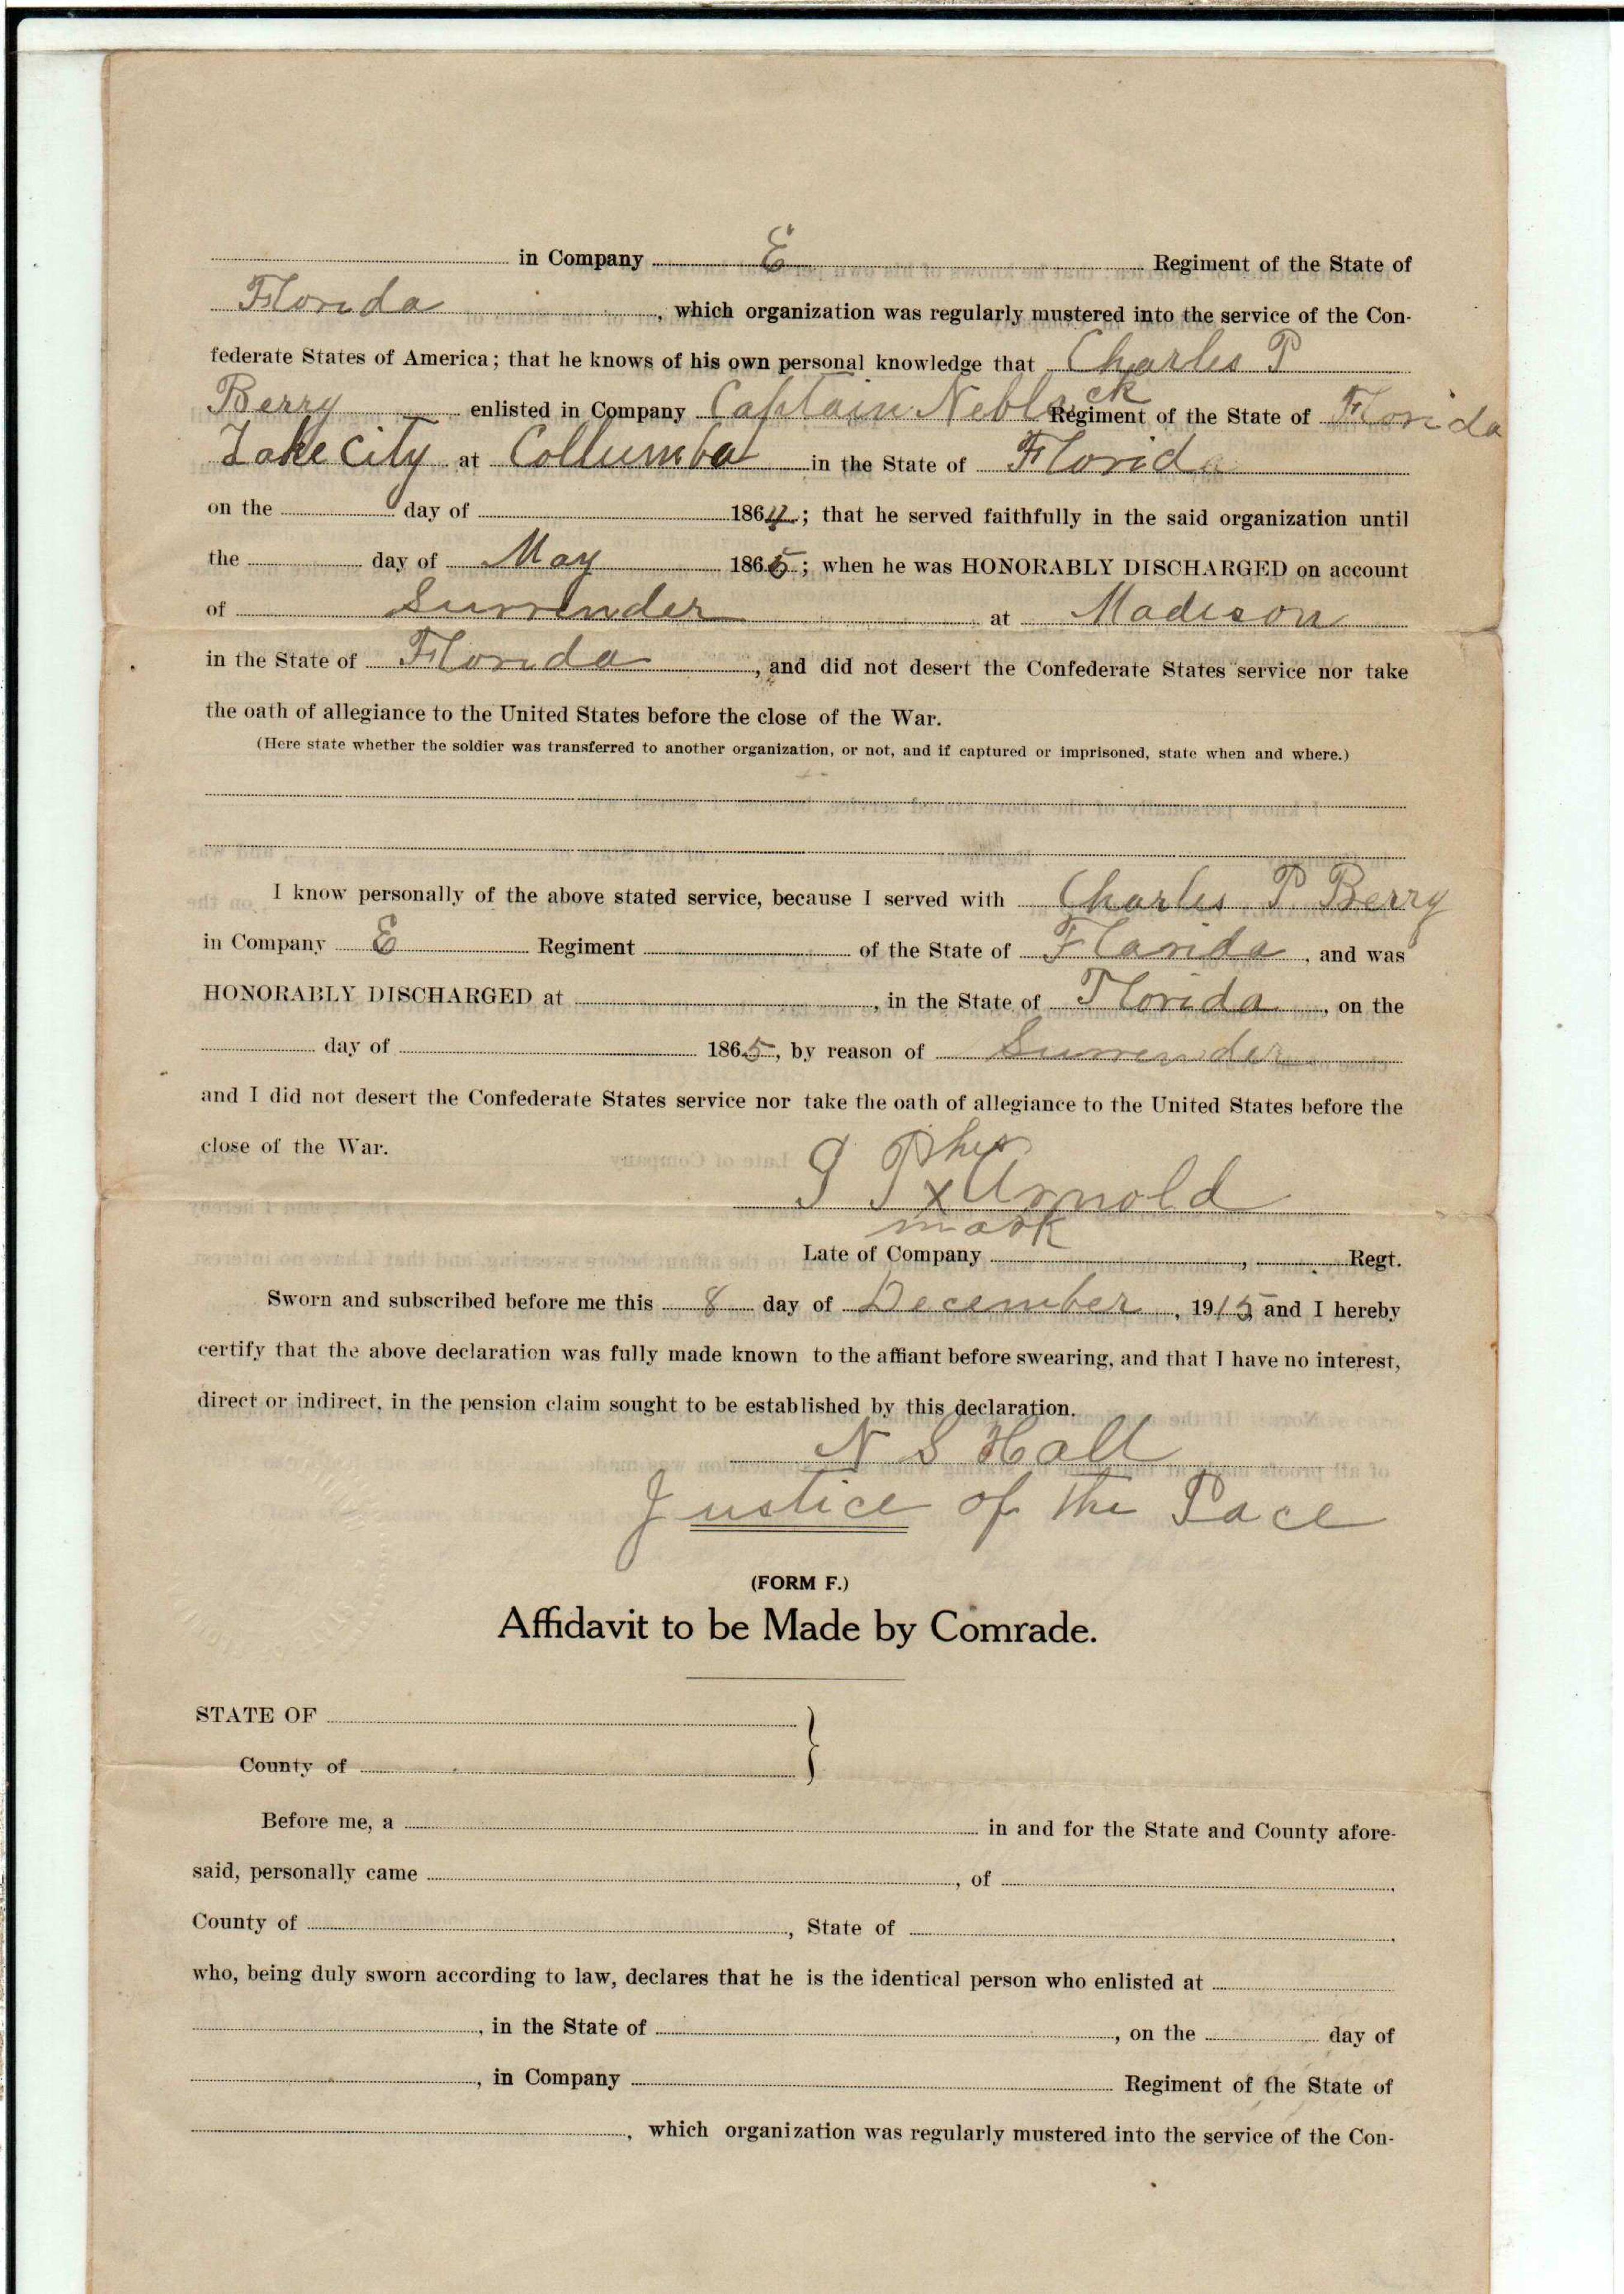 in Company E Regiment of the State of
Florida, which organization was regularly mustered into the service of the Con-
federate States of America; that he knows of his own personal knowledge that Charles P
Berry enlisted in Company Captain Neblack Regiment of the State of Florida
Lake City at Collumba in the State of Florida
on the day of 186; that he served faithfully in the said organization until
the day of May 1865; when he was HONORABLY DISCHARGED on account
of Surrender at Madison
in the State of Florida, and did not desert the Confederate States service nor take
the oath of allegiance to the United States before the close of the War.
(Here state whether the soldier was transferred to another organization, or not, and if captured or imprisoned, state when and where.)
I know personally of the above stated service, because I served with Charles P Berry
in Company E Regiment of the State of Florida, and was
HONORABLY DISCHARGED at , in the State of Florida, on the
day of 1865, by reason of Surrender
and I did not desert the Confederate States service nor take the oath of allegiance to the United States before the
close of the War.
his
x Arnold
mark
Late of Company , Regt.
Sworn and subscribed before me this 8 day of December, 1915, and I hereby
certify that the above declaration was fully made known to the affiant before swearing, and that I have no interest,
direct or indirect, in the pension claim sought to be established by this declaration.
N S Hall
Justice of the Pace
(FORM F.)
Affidavit to be Made by Comrade.
STATE OF
County of
Before me, a in and for the State and County afore-
said, personally came , of
County of , State of
who, being duly sworn according to law, declares that he is the identical person who enlisted at
, in the State of , on the day of
, in Company Regiment of the State of
, which organization was regularly mustered into the service of the Con-